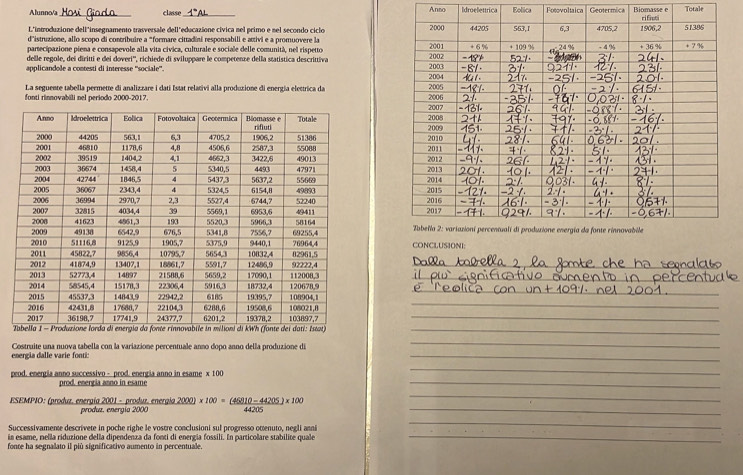 Alunno/a Mosi Giada classe 1°AL
L'introduzione dell'insegnamento trasversale dell'educazione civica nel primo e nel secondo ciclo
d'istruzione, allo scopo di contribuire a "formare cittadini responsabili e attivi e a promuovere la
partecipazione piena e consapevole alla vita civica, culturale e sociale delle comunità, nel rispetto
delle regole, dei diritti e dei doveri", richiede di sviluppare le competenze della statistica descrittiva
applicandole a contesti di interesse "sociale".
La seguente tabella permette di analizzare i dati Istat relativi alla produzione di energia elettrica da
fonti rinnovabili nel periodo 2000-2017.
Anno Idroelettrica Eolica Fotovoltaica Geotermica Biomasse e rifiuti Totale
2000 44205 563,1 6,3 4705,2 1906,2 51386
2001 46810 1178,6 4,8 4506,6 2587,3 55088
2002 39519 1404,2 4,1 4662,3 3422,6 49013
2003 36674 1458,4 5 5340,5 4493 47971
2004 42744 1846,5 4 5437,3 5637,2 55669
2005 36067 2343,4 4 5324,5 6154,8 49893
2006 36994 2970,7 2,3 5527,4 6744,7 52240
2007 32815 4034,4 39 5569,1 6953,6 49411
2008 41623 4861,3 193 5520,3 5966,3 58164
2009 49138 6542,9 676,5 5341,8 7556,7 69255,4
2010 51116,8 9125,9 1905,7 5375,9 9440,1 76964,4
2011 45822,7 9856,4 10795,7 5654,3 10832,4 82961,5
2012 41874,9 13407,1 18861,7 5591,7 12486,9 92222,4
2013 52773,4 14897 21588,6 5659,2 17090,1 112008,3
2014 58545,4 15178,3 22306,4 5916,3 18732,4 120678,9
2015 45537,3 14843,9 22942,2 6185 19395,7 108904,1
2016 42431,8 17688,7 22104,3 6288,6 19508,6 108021,8
2017 36198,7 17741,9 24377,7 6201,2 19378,2 103897,7
Tabella 1 – Produzione lorda di energia da fonte rinnovabile in milioni di kWh (fonte dei dati: Istat)
Costruite una nuova tabella con la variazione percentuale anno dopo anno della produzione di
energia dalle varie fonti:
prod. energia anno successivo - prod. energia anno in esame x 100
prod. energia anno in esame
ESEMPIO: (produz. energia 2001 - produz. energia 2000) x 100 = (46810 – 44205) x 100
produz. energia 2000 44205
Successivamente descrivete in poche righe le vostre conclusioni sul progresso ottenuto, negli anni
in esame, nella riduzione della dipendenza da fonti di energia fossili. In particolare stabilite quale
fonte ha segnalato il più significativo aumento in percentuale.
Anno Idroelettrica Eolica Fotovoltaica Geotermica Biomasse e rifiuti Totale
2000 44205 563,1 6,3 4705,2 1906,2 51386
2001 + 6 % + 109 % - 24 % - 4 % + 36 % + 7 %
2002 -18% 52% 3% 24%
2003 -8% 3% 0,21% 12% 23%
2004 14% 21% -25% -25% 20%
2005 -18% 27% 0% -2% 615%
2006 2% -35% -74% 0,03% 8%
2007 -13% 26% 94% -0,88% 3%
2008 21% 17% 79% -0,88% -16%
2009 15% 25% 71% -3% 21%
2010 4% 28% 64% 0,63% 20%
2011 -11% 7% 82% 5% 13%
2012 -9% 26% 42% -1% 13%
2013 20% 10% 12% -1% 27%
2014 10% 2% 0,03% 4% 8%
2015 -12% -2% 2% 4% 3%
2016 -7% 16% -3% -1% 0,57%
2017 -17% 0,29% 9% -1% -0,67%
Tabella 2: variazioni percentuali di produzione energia da fonte rinnovabile
CONCLUSIONI:
Dalla tabella 2, la fonte che ha segnalato
il più significativo aumento in percentuale
è l'eolica con un +109% nel 2001.